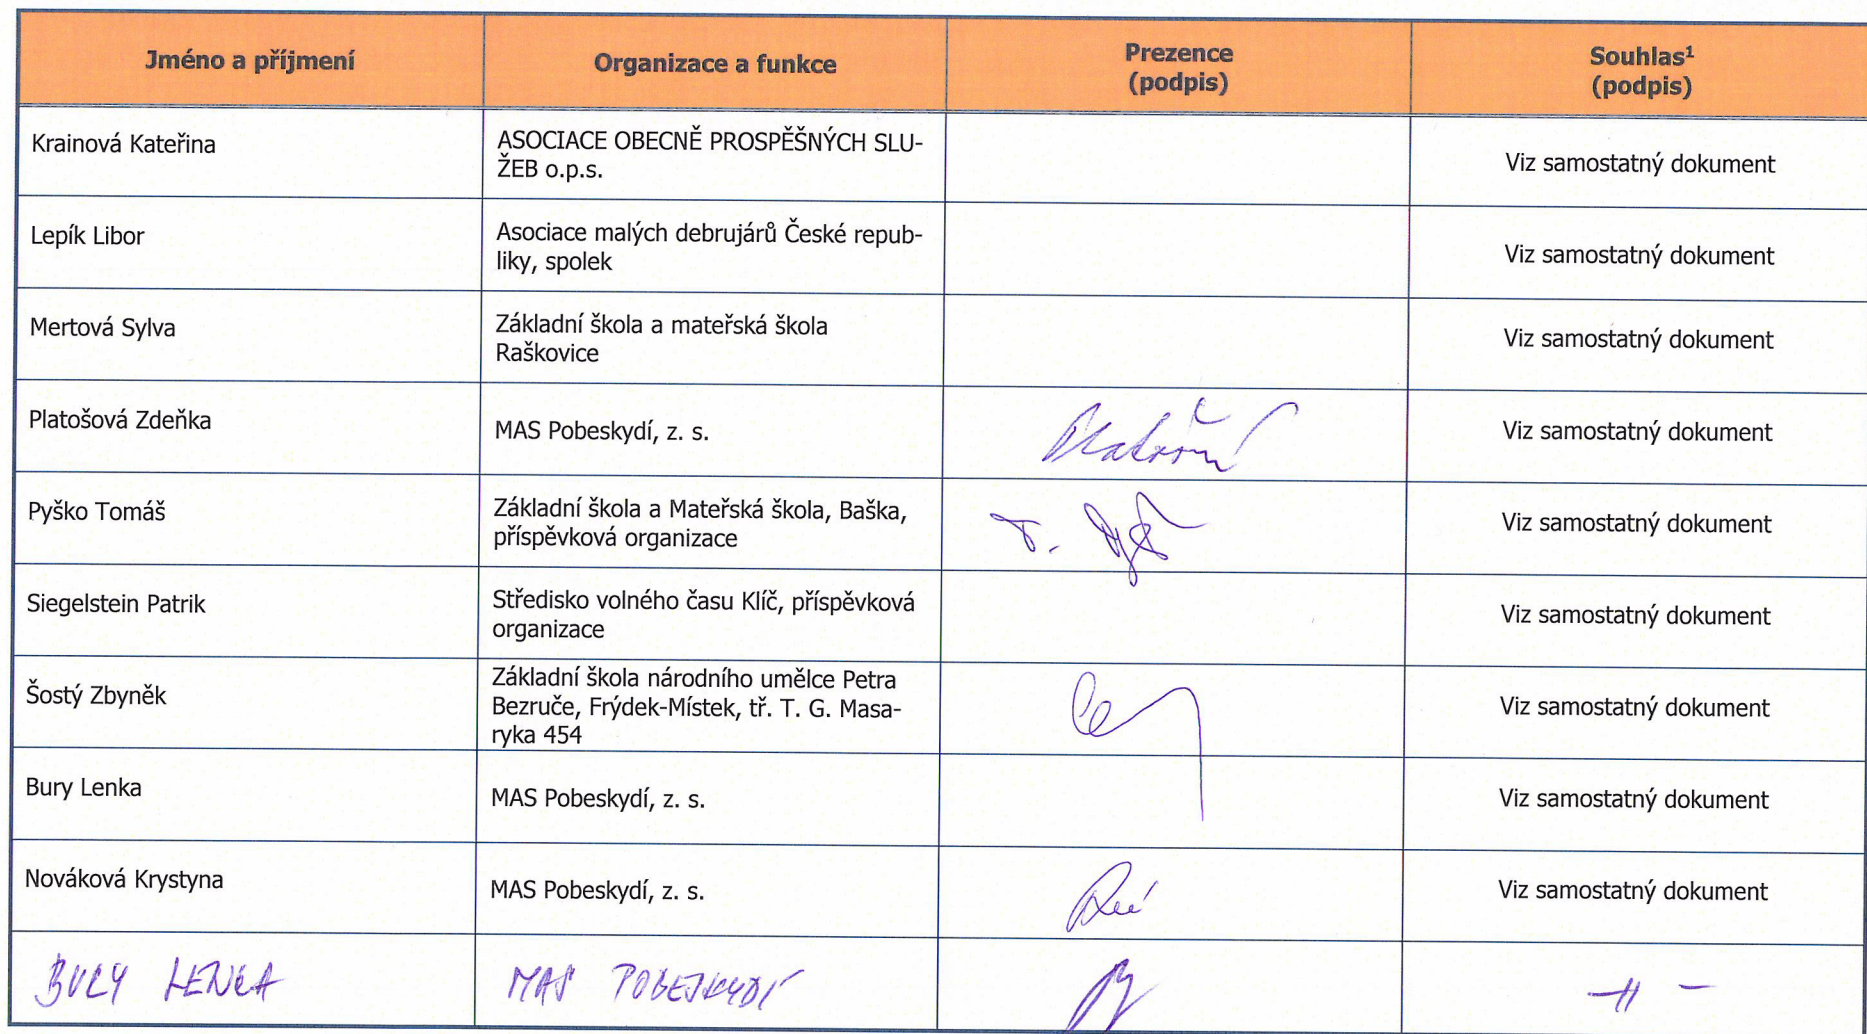 Jméno a příjmení
Organizace a funkce
Prezence
(podpis)
Souhlas¹
(podpis)
Krainová Kateřina
ASOCIACE OBECNĚ PROSPĚŠNÝCH SLU-
ŽEB o.p.s.
Viz samostatný dokument
Lepík Libor
Asociace malých debrujárů České repub-
liky, spolek
Viz samostatný dokument
Mertová Sylva
Základní škola a mateřská škola
Raškovice
Viz samostatný dokument
Platošová Zdeňka
MAS Pobeskydí, z. s.
Viz samostatný dokument
Pyško Tomáš
Základní škola a Mateřská škola, Baška,
příspěvková organizace
T.
Viz samostatný dokument
Siegelstein Patrik
Středisko volného času Klíč, příspěvková
organizace
Viz samostatný dokument
Šostý Zbyněk
Základní škola národního umělce Petra
Bezruče, Frýdek-Místek, tř. T. G. Masa-
ryka 454
Viz samostatný dokument
Bury Lenka
MAS Pobeskydí, z. s.
Viz samostatný dokument
Nováková Krystyna
MAS Pobeskydí, z. s.
Viz samostatný dokument
BURY LENKA
MAS POBESKYDÍ
-11-